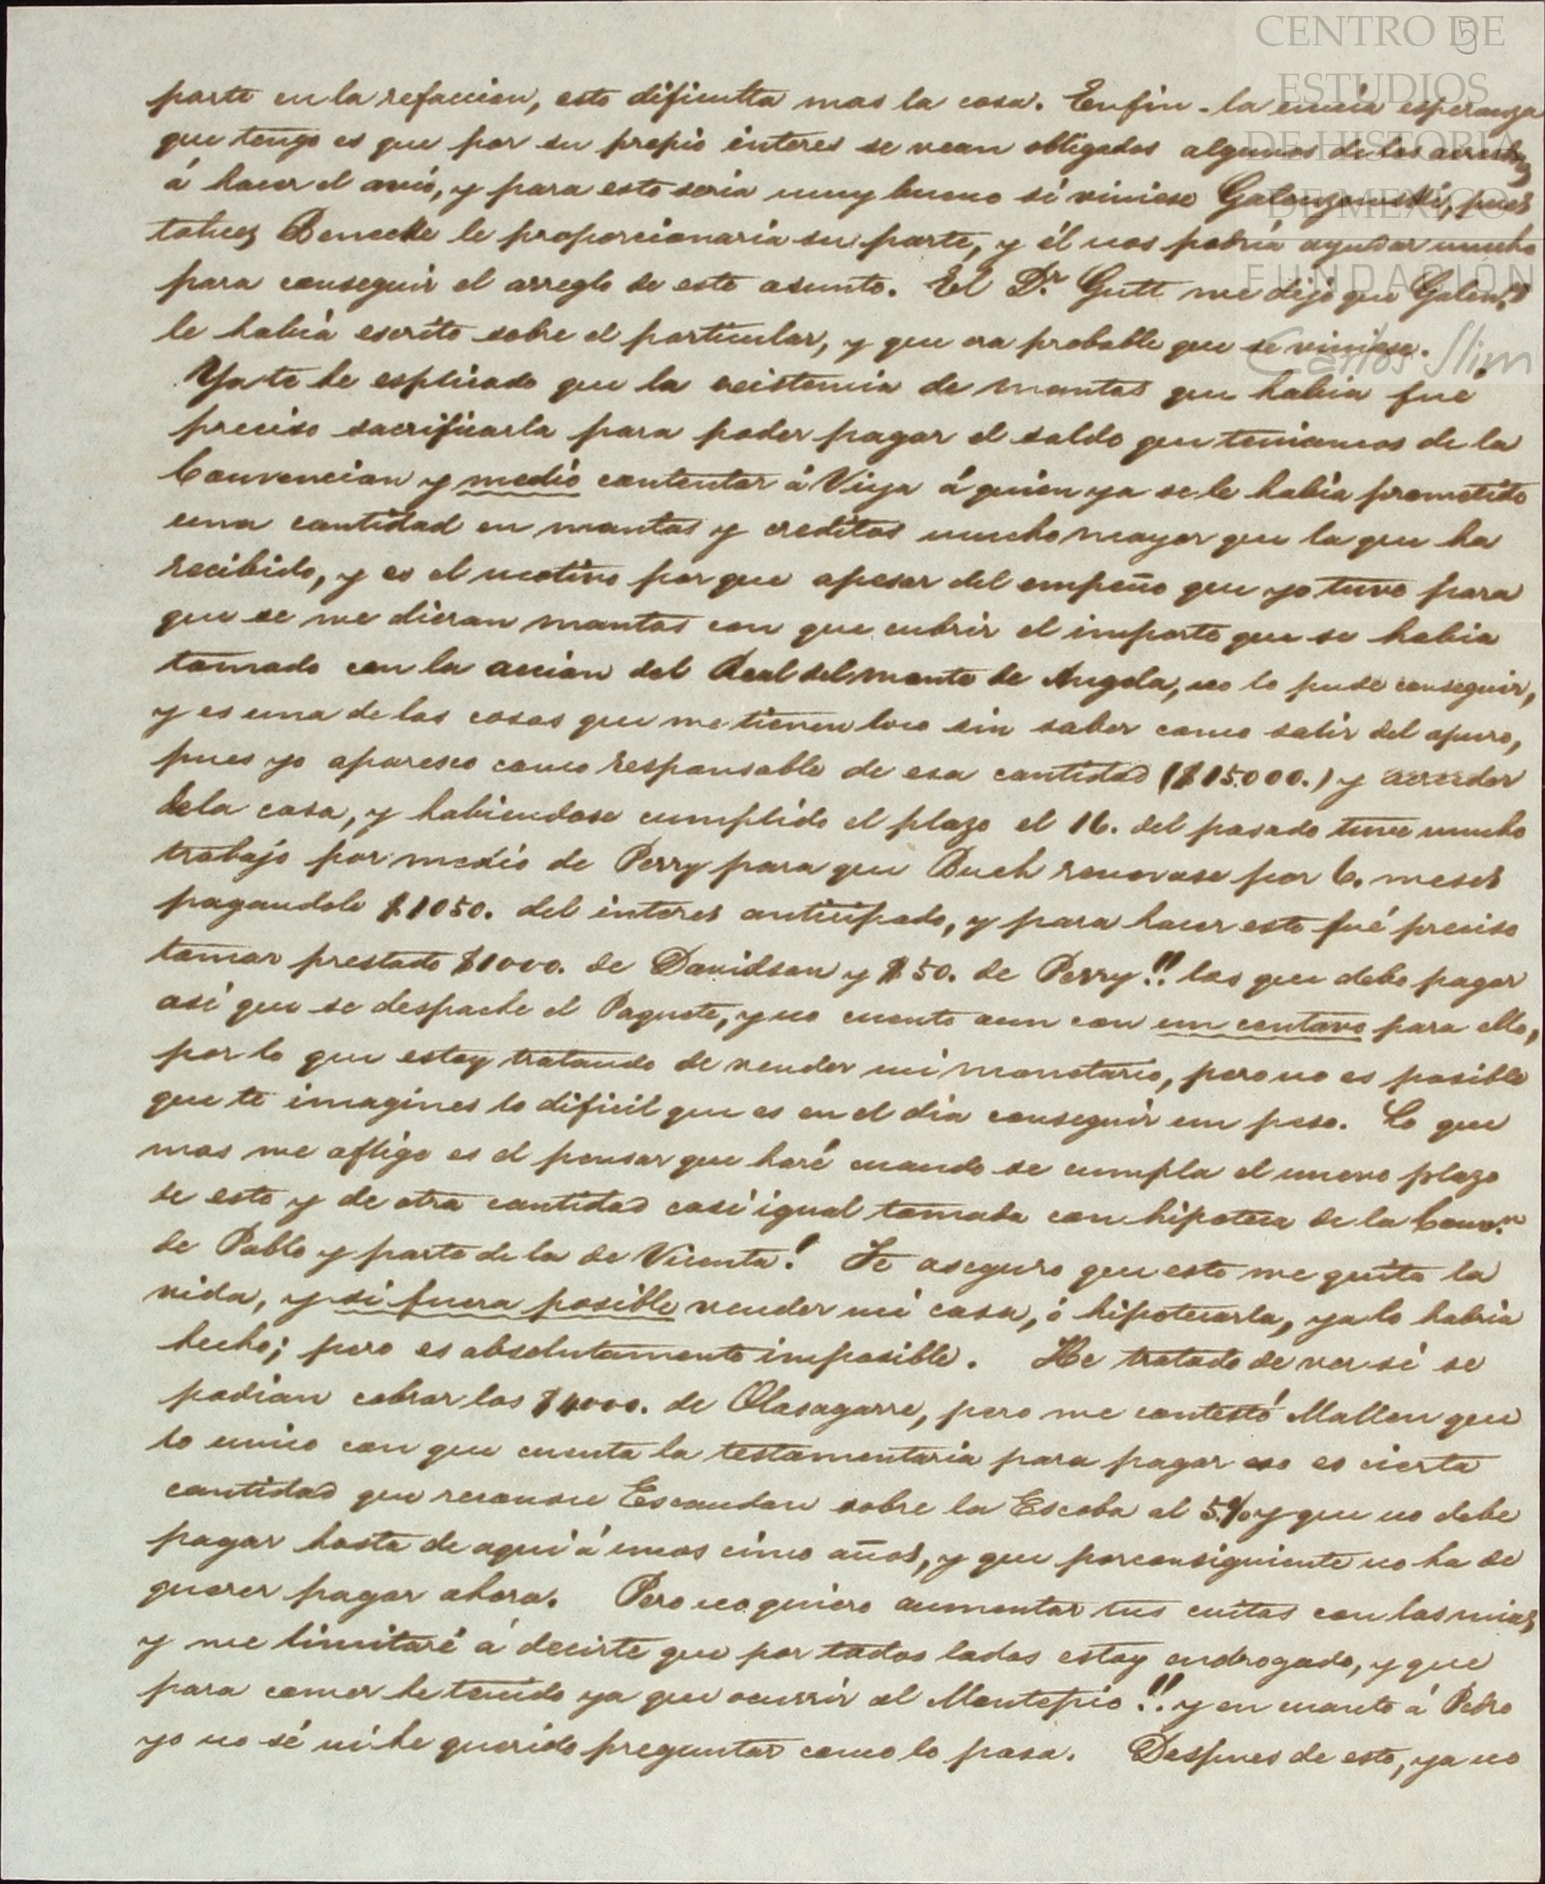 CENTRO DE
ESTUDIOS
DE HISTORIA
DE MEXICO
FUNDACIÓN
Carlos Slim
5
parte en la refaccion, esto dificulta mas la cosa. Enfin - la única esperanza
que tengo es que por su propio interes se vean obligados algunos de los acreeds
á hacer el avió, y para esto seria muy bueno si viniese Galenzowski, pues
talvez Benecke le proporcionaria su parte, y él nos podria ayudar mucho
para conseguir el arreglo de este asunto. El Dr. Gutt me dijo que Galen.
le habia escrito sobre el particular, y que era probable que se viniese.
Ya te he esplicado que la existencia de mantas que habia fué
preciso sacrificarla para poder pagar el saldo que teniamos de la
Convencion y medio contentar á Viya á quien ya se le habia prometido
una cantidad en mantas y creditos mucho mayor que la que ha
recibido, y es el motivo por que apesar del empeño que yo tuve para
que se me dieran mantas con que cubrir el importe que se habia
tomado con la accion del Real del monte de Angela, no lo pude conseguir,
y es una de las cosas que me tienen loco sin saber como salir del apuro,
pues yo aparesco como responsable de esa cantidad ($15.000.) y acreedor
de la casa, y habiendose cumplido el plazo el 16. del pasado tuve mucho
trabajo por medio de Perry para que Buch renovase por 6. meses
pagandole $1050. del interes anticipado, y para hacer esto fué preciso
tomar prestado $1000. de Davidson y $50. de Perry!! los que debo pagar
asi que se despache el Paquete, y no cuento aun con un centavo para ello,
por lo que estoy tratando de vender mi monetario, pero no es posible
que te imagines lo dificil que es en el dia conseguir un peso. Lo que
mas me aflige es el pensar que haré cuando se cumpla el nuevo plazo
de esto y de otra cantidad casi igual tomada con hipoteca de la Convn.
de Pablo y parte de la de Vicenta! Te aseguro que esto me quita la
vida, y si fuera posible vender mi casa, ó hipotecarla, ya lo habria
hecho; pero es absolutamente imposible. He tratado de ver si se
podian cobrar los $4000. de Olasagarre, pero me contestó Mallen que
lo unico con que cuenta la testamentaria para pagar eso es cierta
cantidad que reconoce Escandon sobre la Escoba al 5.% y que no debe
pagar hasta de aqui á unos cinco años, y que porconsiguiente no ha de
querer pagar ahora. Pero no quiero aumentar tus cuitas con las mias,
y me limitaré á decirte que por todos lados estoy endrogado, y que
para comer he tenido ya que ocurrir al Montepio!!. y en cuanto á Pedro
yo no sé ni he querido preguntar como lo pasa. Despues de esto, ya no